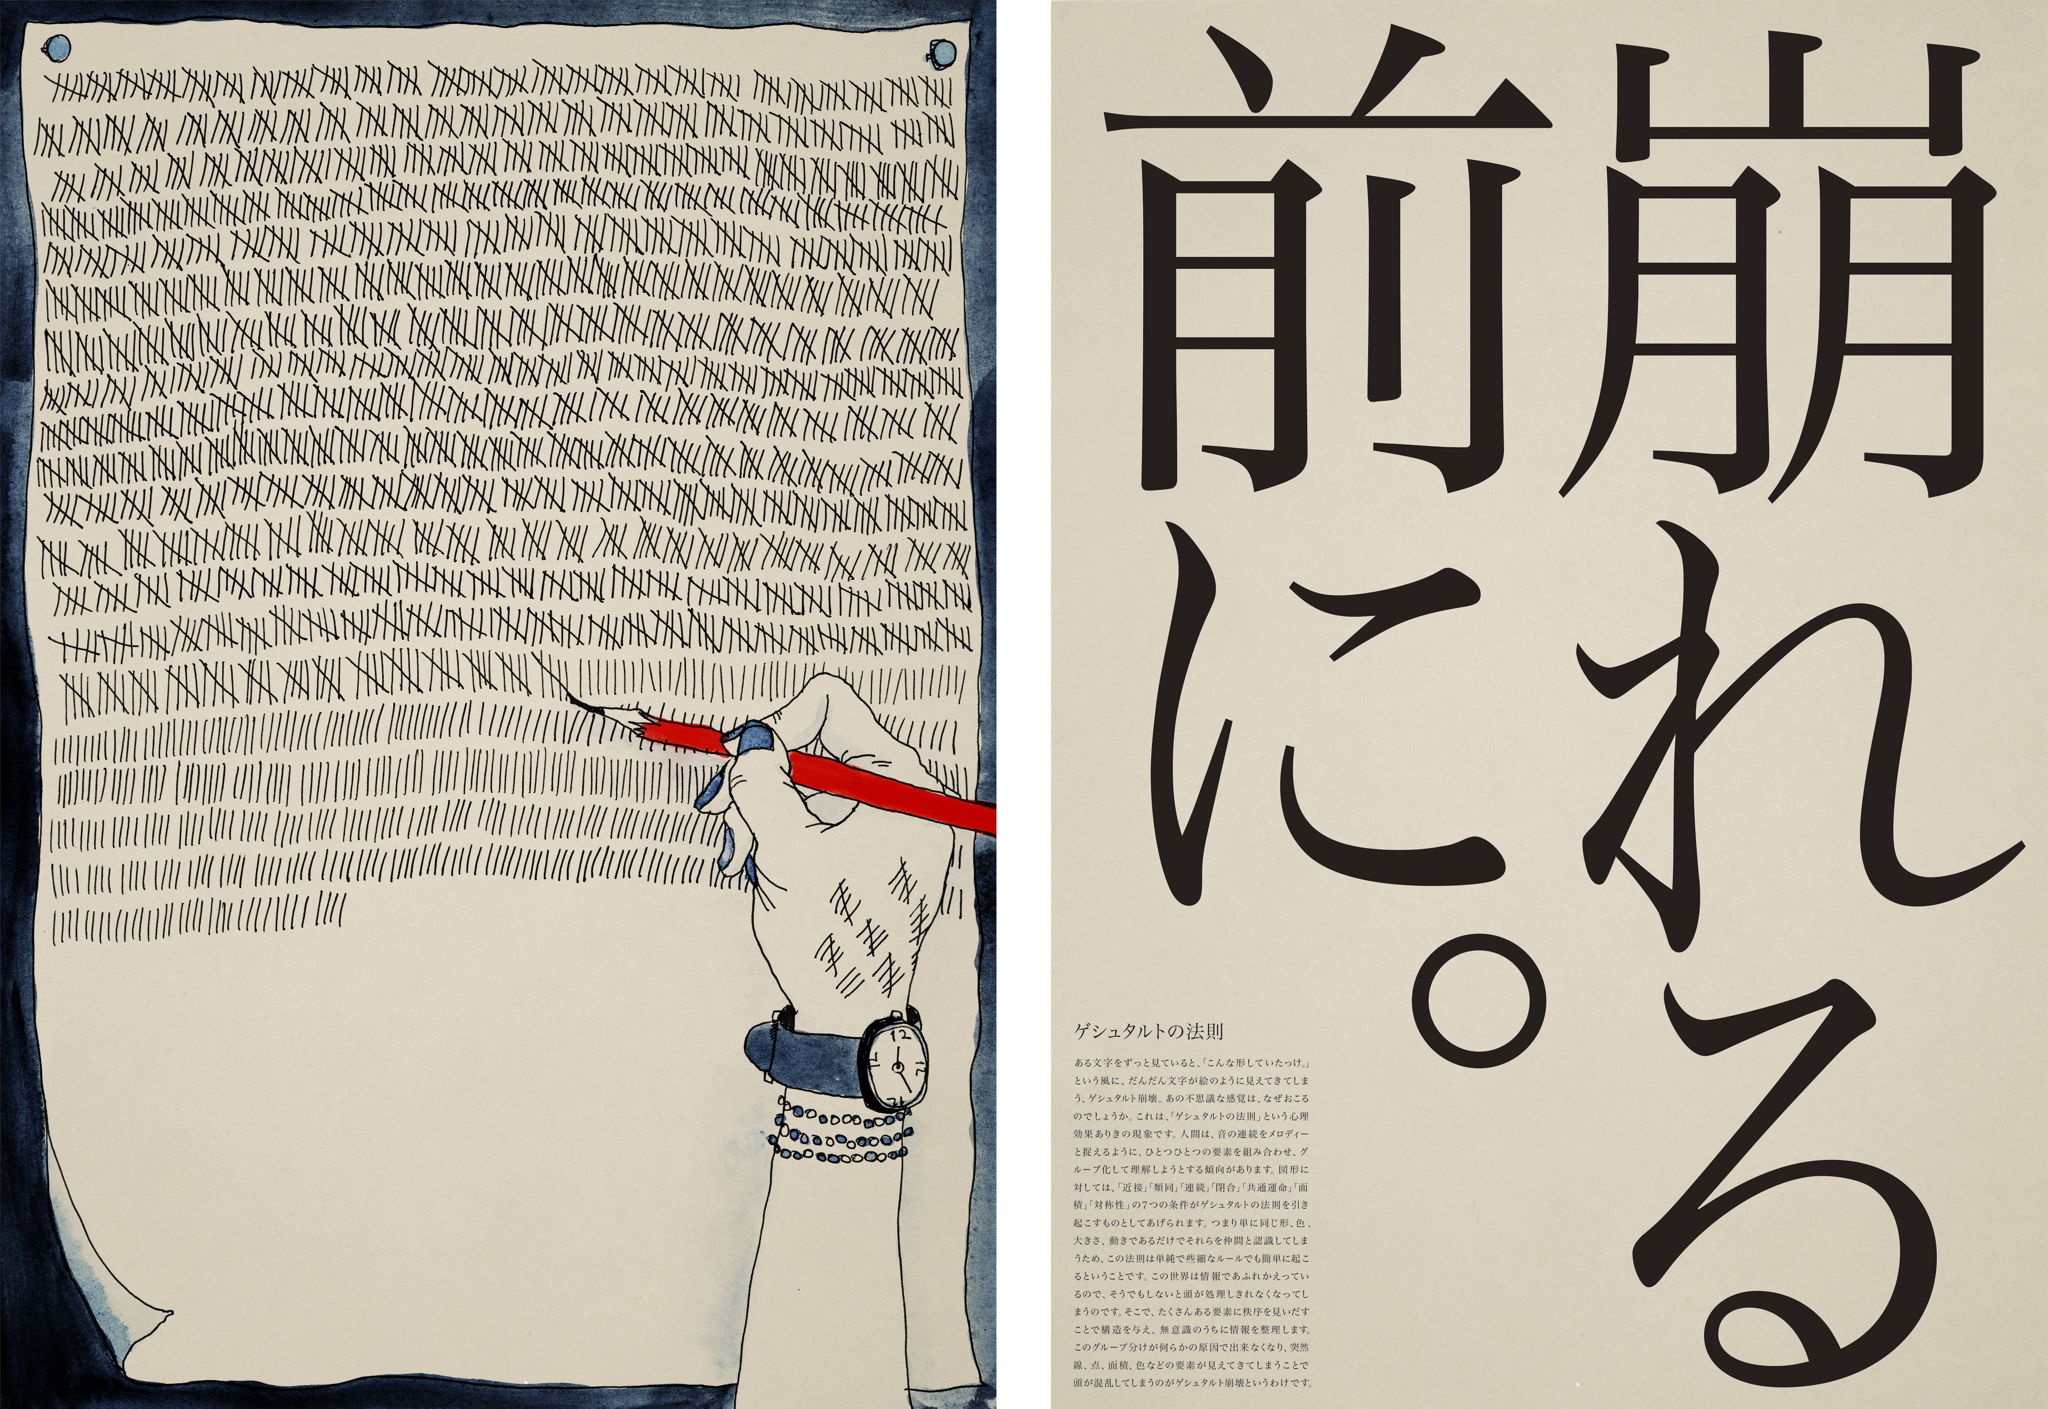 崩れる
前に。
ゲシュタルトの法則
ある文字をずっと見ていると、「こんな形していたっけ。」
という風に、だんだん文字が絵のように見えてきてしま
う、ゲシュタルト崩壊。あの不思議な感覚は、なぜおこる
のでしょうか。これは、「ゲシュタルトの法則」という心理
効果ありきの現象です。人間は、音の連続をメロディー
と捉えるように、ひとつひとつの要素を組み合わせ、グ
ループ化して理解しようとする傾向があります。図形に
対しては、「近接」「類同」「連続」「閉合」「共通運命」「面
積」「対称性」の7つの条件がゲシュタルトの法則を引き
起こすものとしてあげられます。つまり単に同じ形、色、
大きさ、動きであるだけでそれらを仲間と認識してしま
うため、この法則は単純で些細なルールでも簡単に起こ
るということです。この世界は情報であふれかえってい
るので、そうでもしないと頭が処理しきれなくなってし
まうのです。そこで、たくさんある要素に秩序を見いだす
ことで構造を与え、無意識のうちに情報を整理します。
このグループ分けが何らかの原因で出来なくなり、突然
線、点、面積、色などの要素が見えてきてしまうことで
頭が混乱してしまうのがゲシュタルト崩壊というわけです。